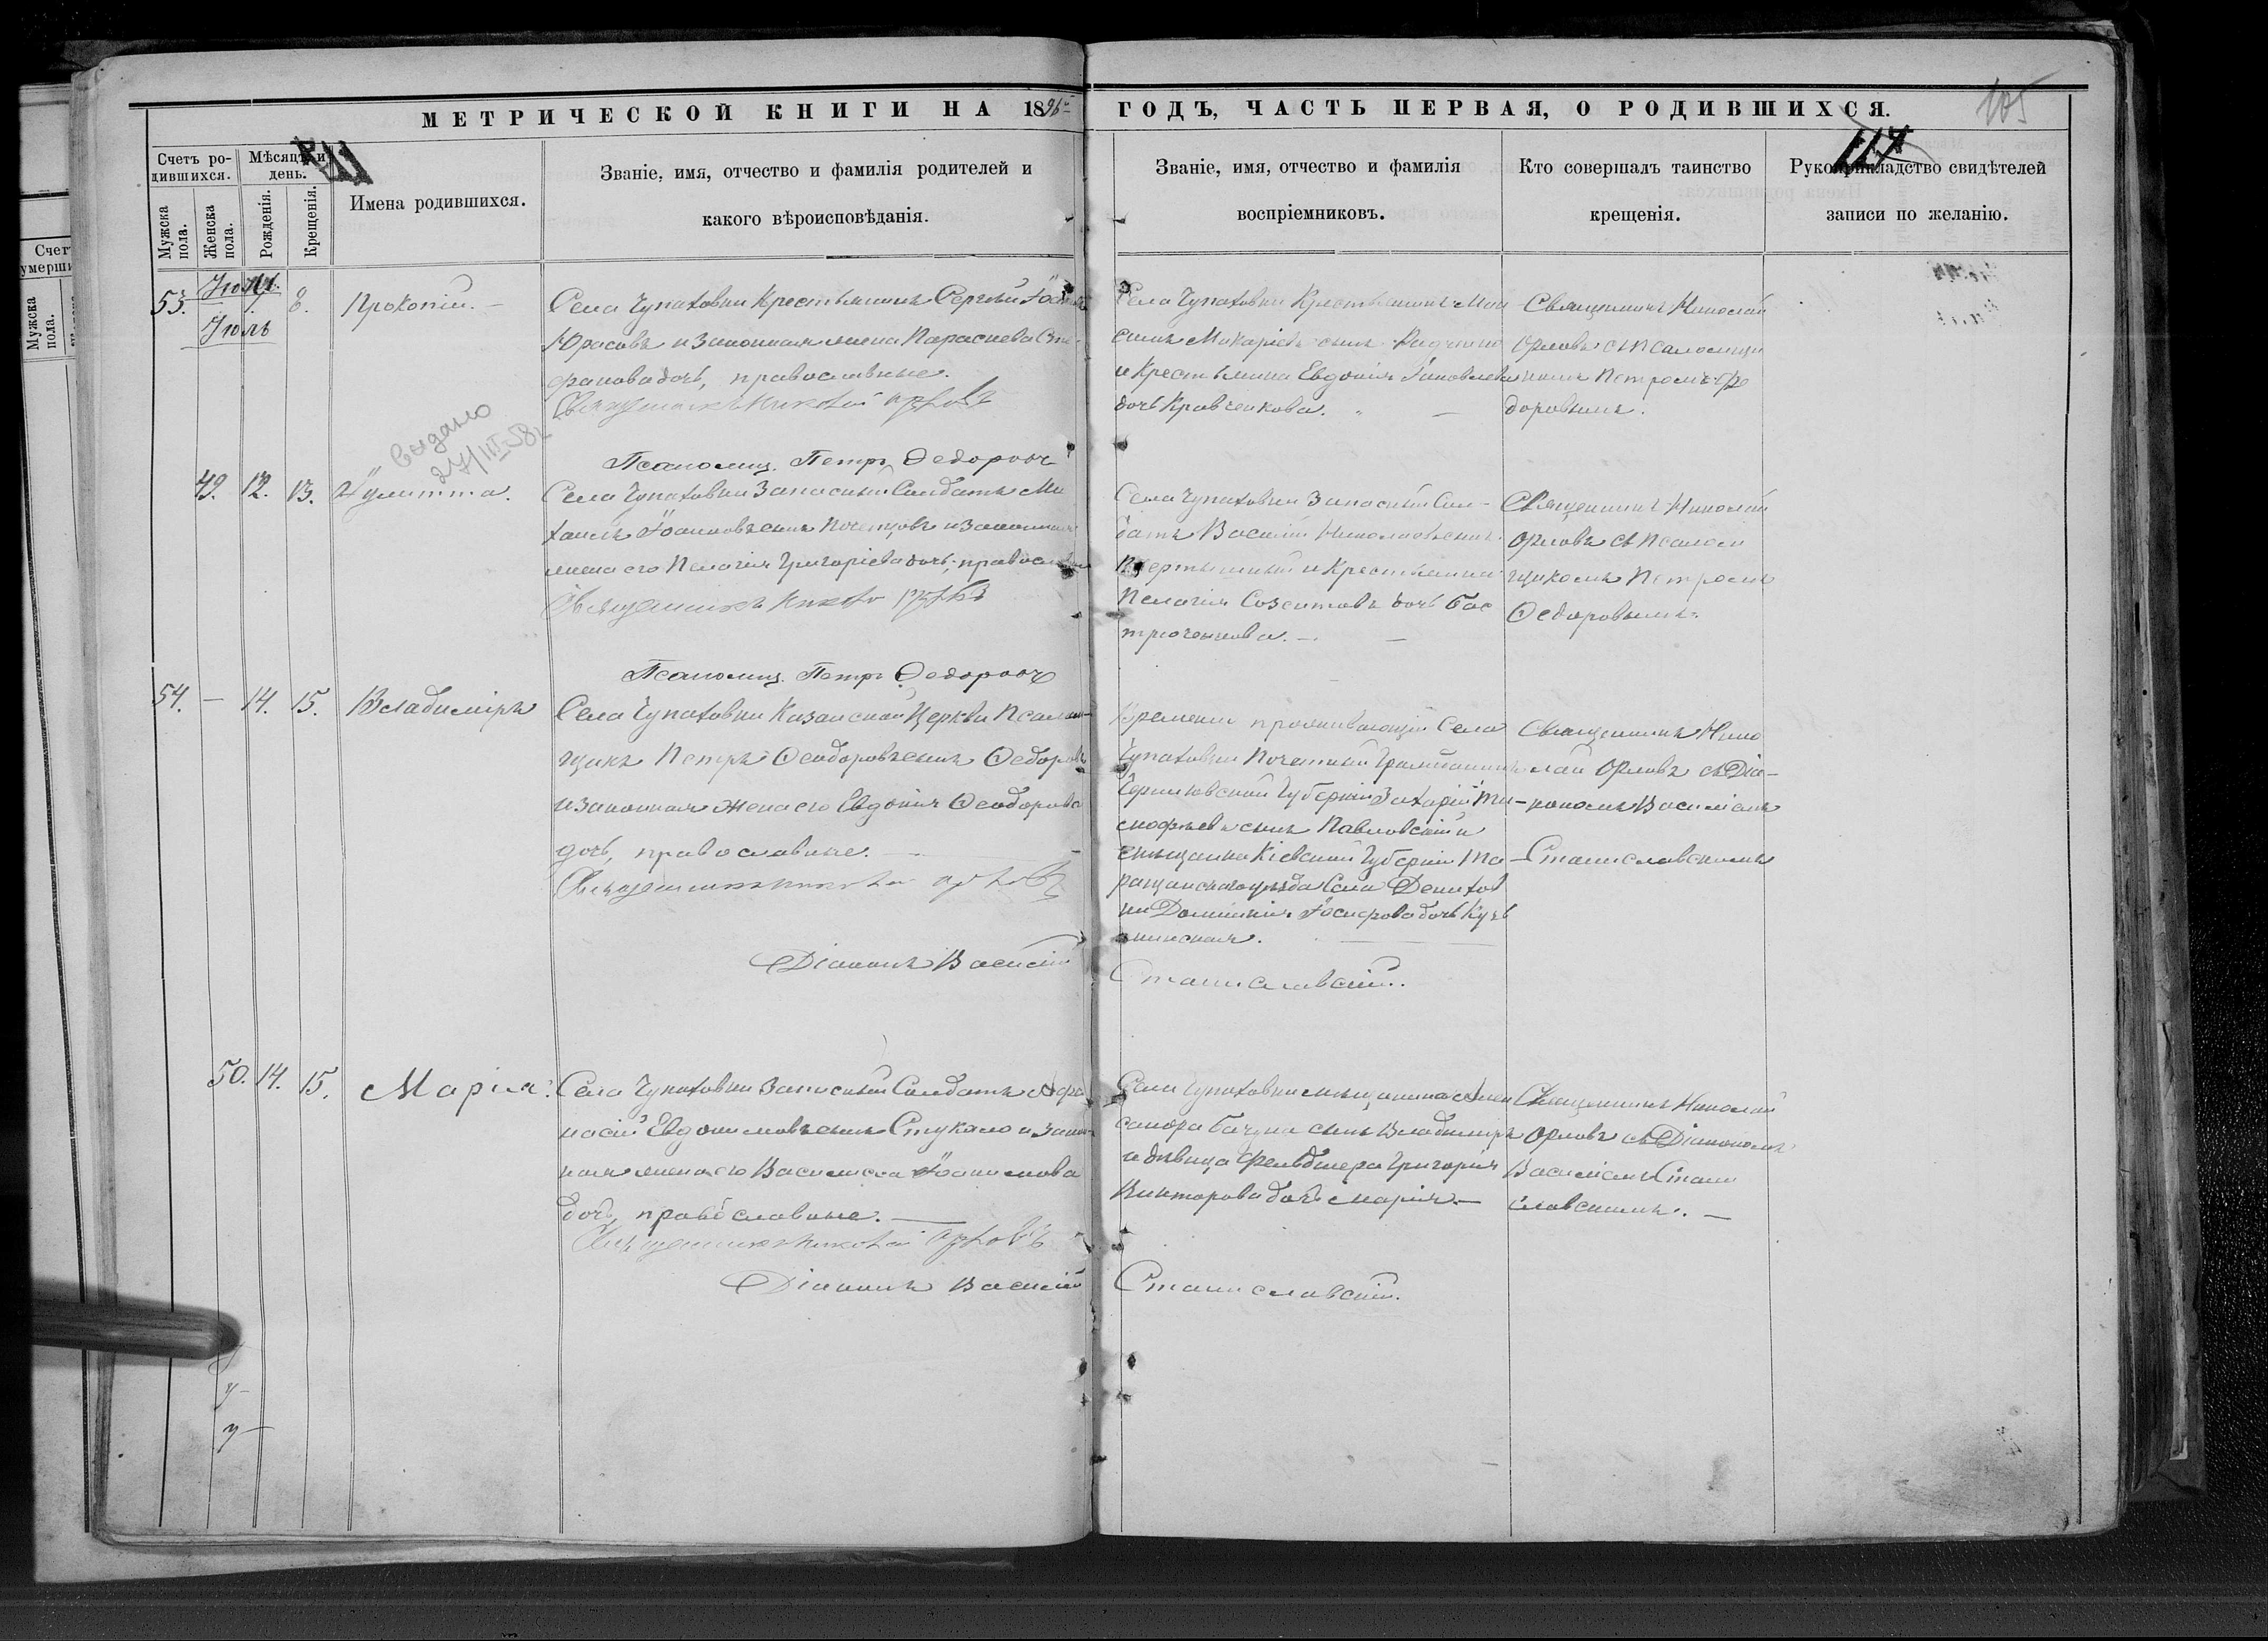 МЕТРИЧЕСКОЙ КНИГИ НА 1896
ГОДЪ, ЧАСТЬ ПЕРВАЯ, О РОДИВШИХСЯ.
105
117
Счетъ родившихся.
Мужска пола.
Женска пола.
Мѣсяцъ и день.
Рожденія.
Крещенія.
Имена родившихся.
Званіе, имя, отчество и фамилія родителей и
какого вѣроисповѣданія.
Званіе, имя, отчество и фамилія
воспріемниковъ.
Кто совершалъ таинство
крещенія.
Рукоприкладство свидѣтелей
записи по желанію.
Счет
умерши
Мужска пола.
Июль
53. 8. Прокопій.
Села Чупаховки Крестьянинъ Сергѣй
Юрасовъ и Законная жена Параскева Сте-
фанова дочь, православные.
Священникъ Николай Орловъ
Псаломщ. Петръ Федоровъ
Села Чупаховки Крестьянинъ Мои
сей Макаріевъ сынъ
и Крестьянка Евдокія Яковлева
дочь Кравченкова.
Священникъ Николай
Орловъ съ псаломщи
комъ Петромъ Фе
доровымъ.
Выдано
27/III-58
49. 12. 13. Иулитта.
Села Чупаховки Запасный Солдатъ Ми
хаилъ Іоанновъ сынъ Почепцовъ и Законная
жена его Пелагія Григоріева дочь, православные
Священникъ Николай Орловъ
Псаломщ. Петръ Федоровъ
Села Чупаховки Запасный Сол-
датъ Василій Николаевъ сынъ
и Крестьянка
Пелагія Созонтова дочь Бас
трюченкова.
Священникъ Николай
Орловъ съ Псалом
щикомъ Петромъ
Федоровымъ.
54. — 14. 15. Владиміръ
Села Чупаховки Казанской Церкви Псалом-
щикъ Петръ Феодоровъ сынъ Федоровъ
и законная жена его Евдокія Феодорова
дочь, православные.
Священникъ Николай Орловъ
Діаконъ Василій
Станиславскій.
Временно проживающій Села
Чупаховки Почетный Гражданинъ
Черниговской Губерніи Захарій Ти-
мофѣевъ сынъ Павловскій и
мѣщанка Кіевской Губерніи Та-
ращанскаго уѣзда Села
Іосифова дочь
Священникъ Нико
лай Орловъ съ Діа-
кономъ Василіемъ
Станиславскимъ
50. 14. 15. Марія.
Села Чупаховки Запасный Солдатъ Афа
насій Евдокимовъ сынъ Стукало и Закон-
ная жена его Василисса
дочь, православные.
Священникъ Николай Орловъ
Діаконъ Василій
Станиславскій.
Села Чупаховки мѣщанина Алек
сандра сынъ Владиміръ
и дѣвица Фельдшера Григорія
Викторова дочь Марія.
Священникъ Николай
Орловъ съ Діакономъ
Василіемъ Стани
славскимъ.